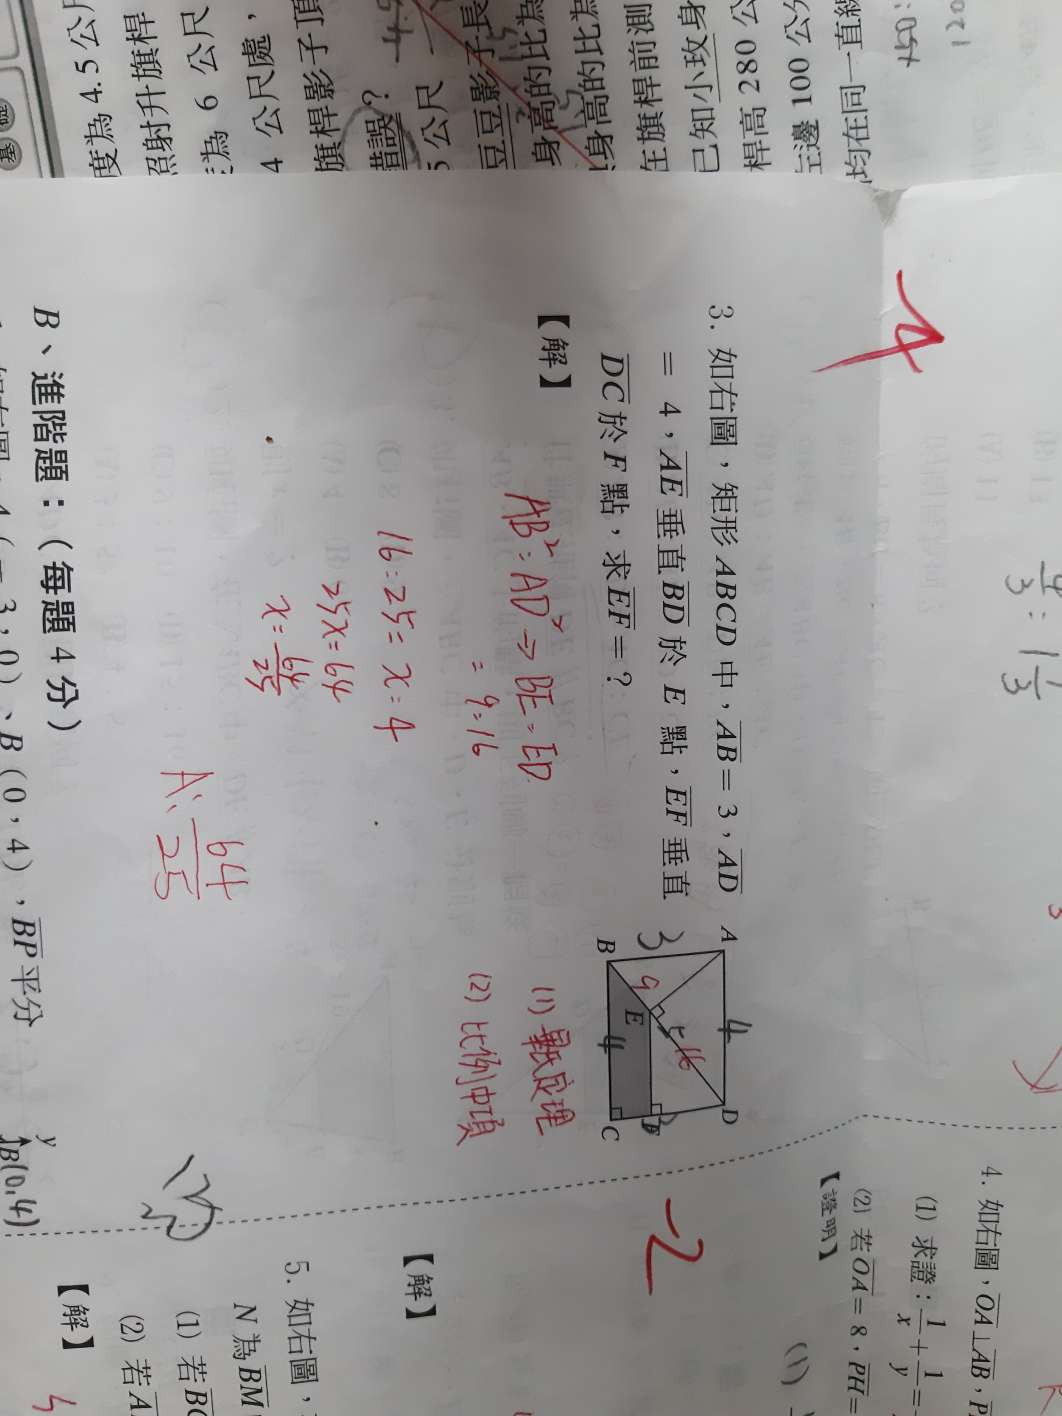 度為 4.5 公尺
照射升旗桿
為 6 公尺
4 公尺處，
旗桿影子頂
錯誤？
5 公尺
豆豆影子長
身高的比為
身高的比為
在旗桿前測
已知小玫身
桿高 280 公
左邊 100 公分
均在同一直線
-4
3. 如右圖，矩形 ABCD 中，AB = 3，AD
= 4，AE 垂直 BD 於 E 點，EF 垂直
DC 於 F 點，求 EF = ？
【解】
AB²:AD² → BE:ED
= 9:16
16:25 = x:4
25x=64
x=64/25
A: 64/25
A
3
B
9
E
5
16
4
4
D
F
C
(1) 母子定理
(2) 比例中項
B、進階題：（每題 4 分）
A（－3 , 0）、B（0 , 4），BP 平分
y
B(0,4)
-2
4. 如右圖，OA⊥AB，P
(1) 求證：1/x + 1/y =
(2) 若 OA = 8，PH =
【證明】
(1)
【解】
5. 如右圖，
N 為 BM
(1) 若 BC
(2) 若 A
【解】